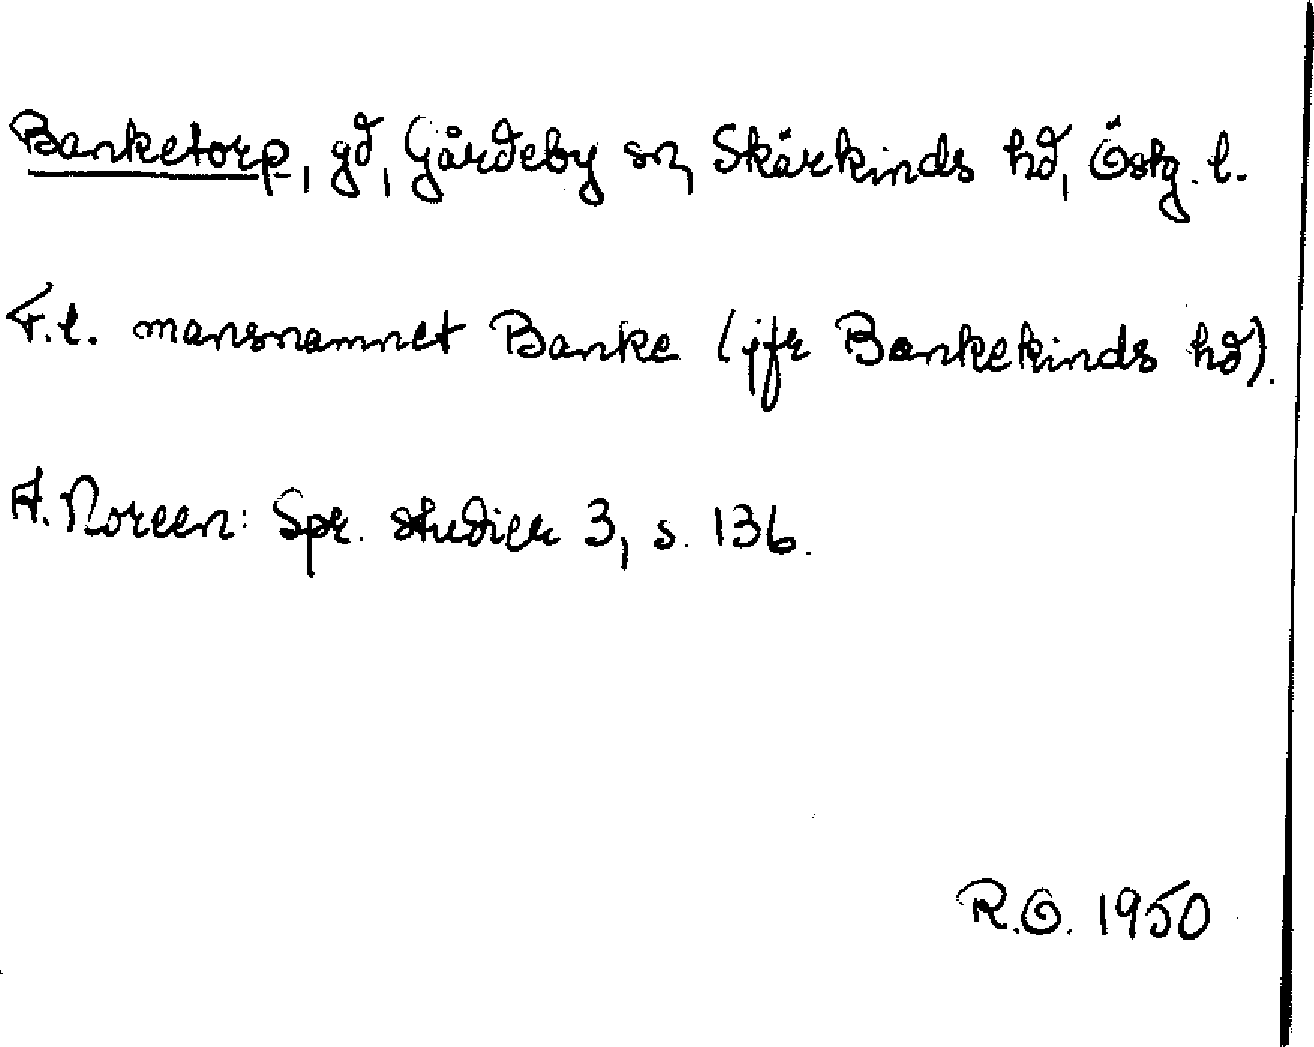 Banketorp, gd, Gårdeby sn, Skärkinds hd, Östg. l.
F.l. mansnamnet Banke (jfr Bankekinds hd).
A. Noreen: Spr. studier 3, s. 136.
R.O. 1950